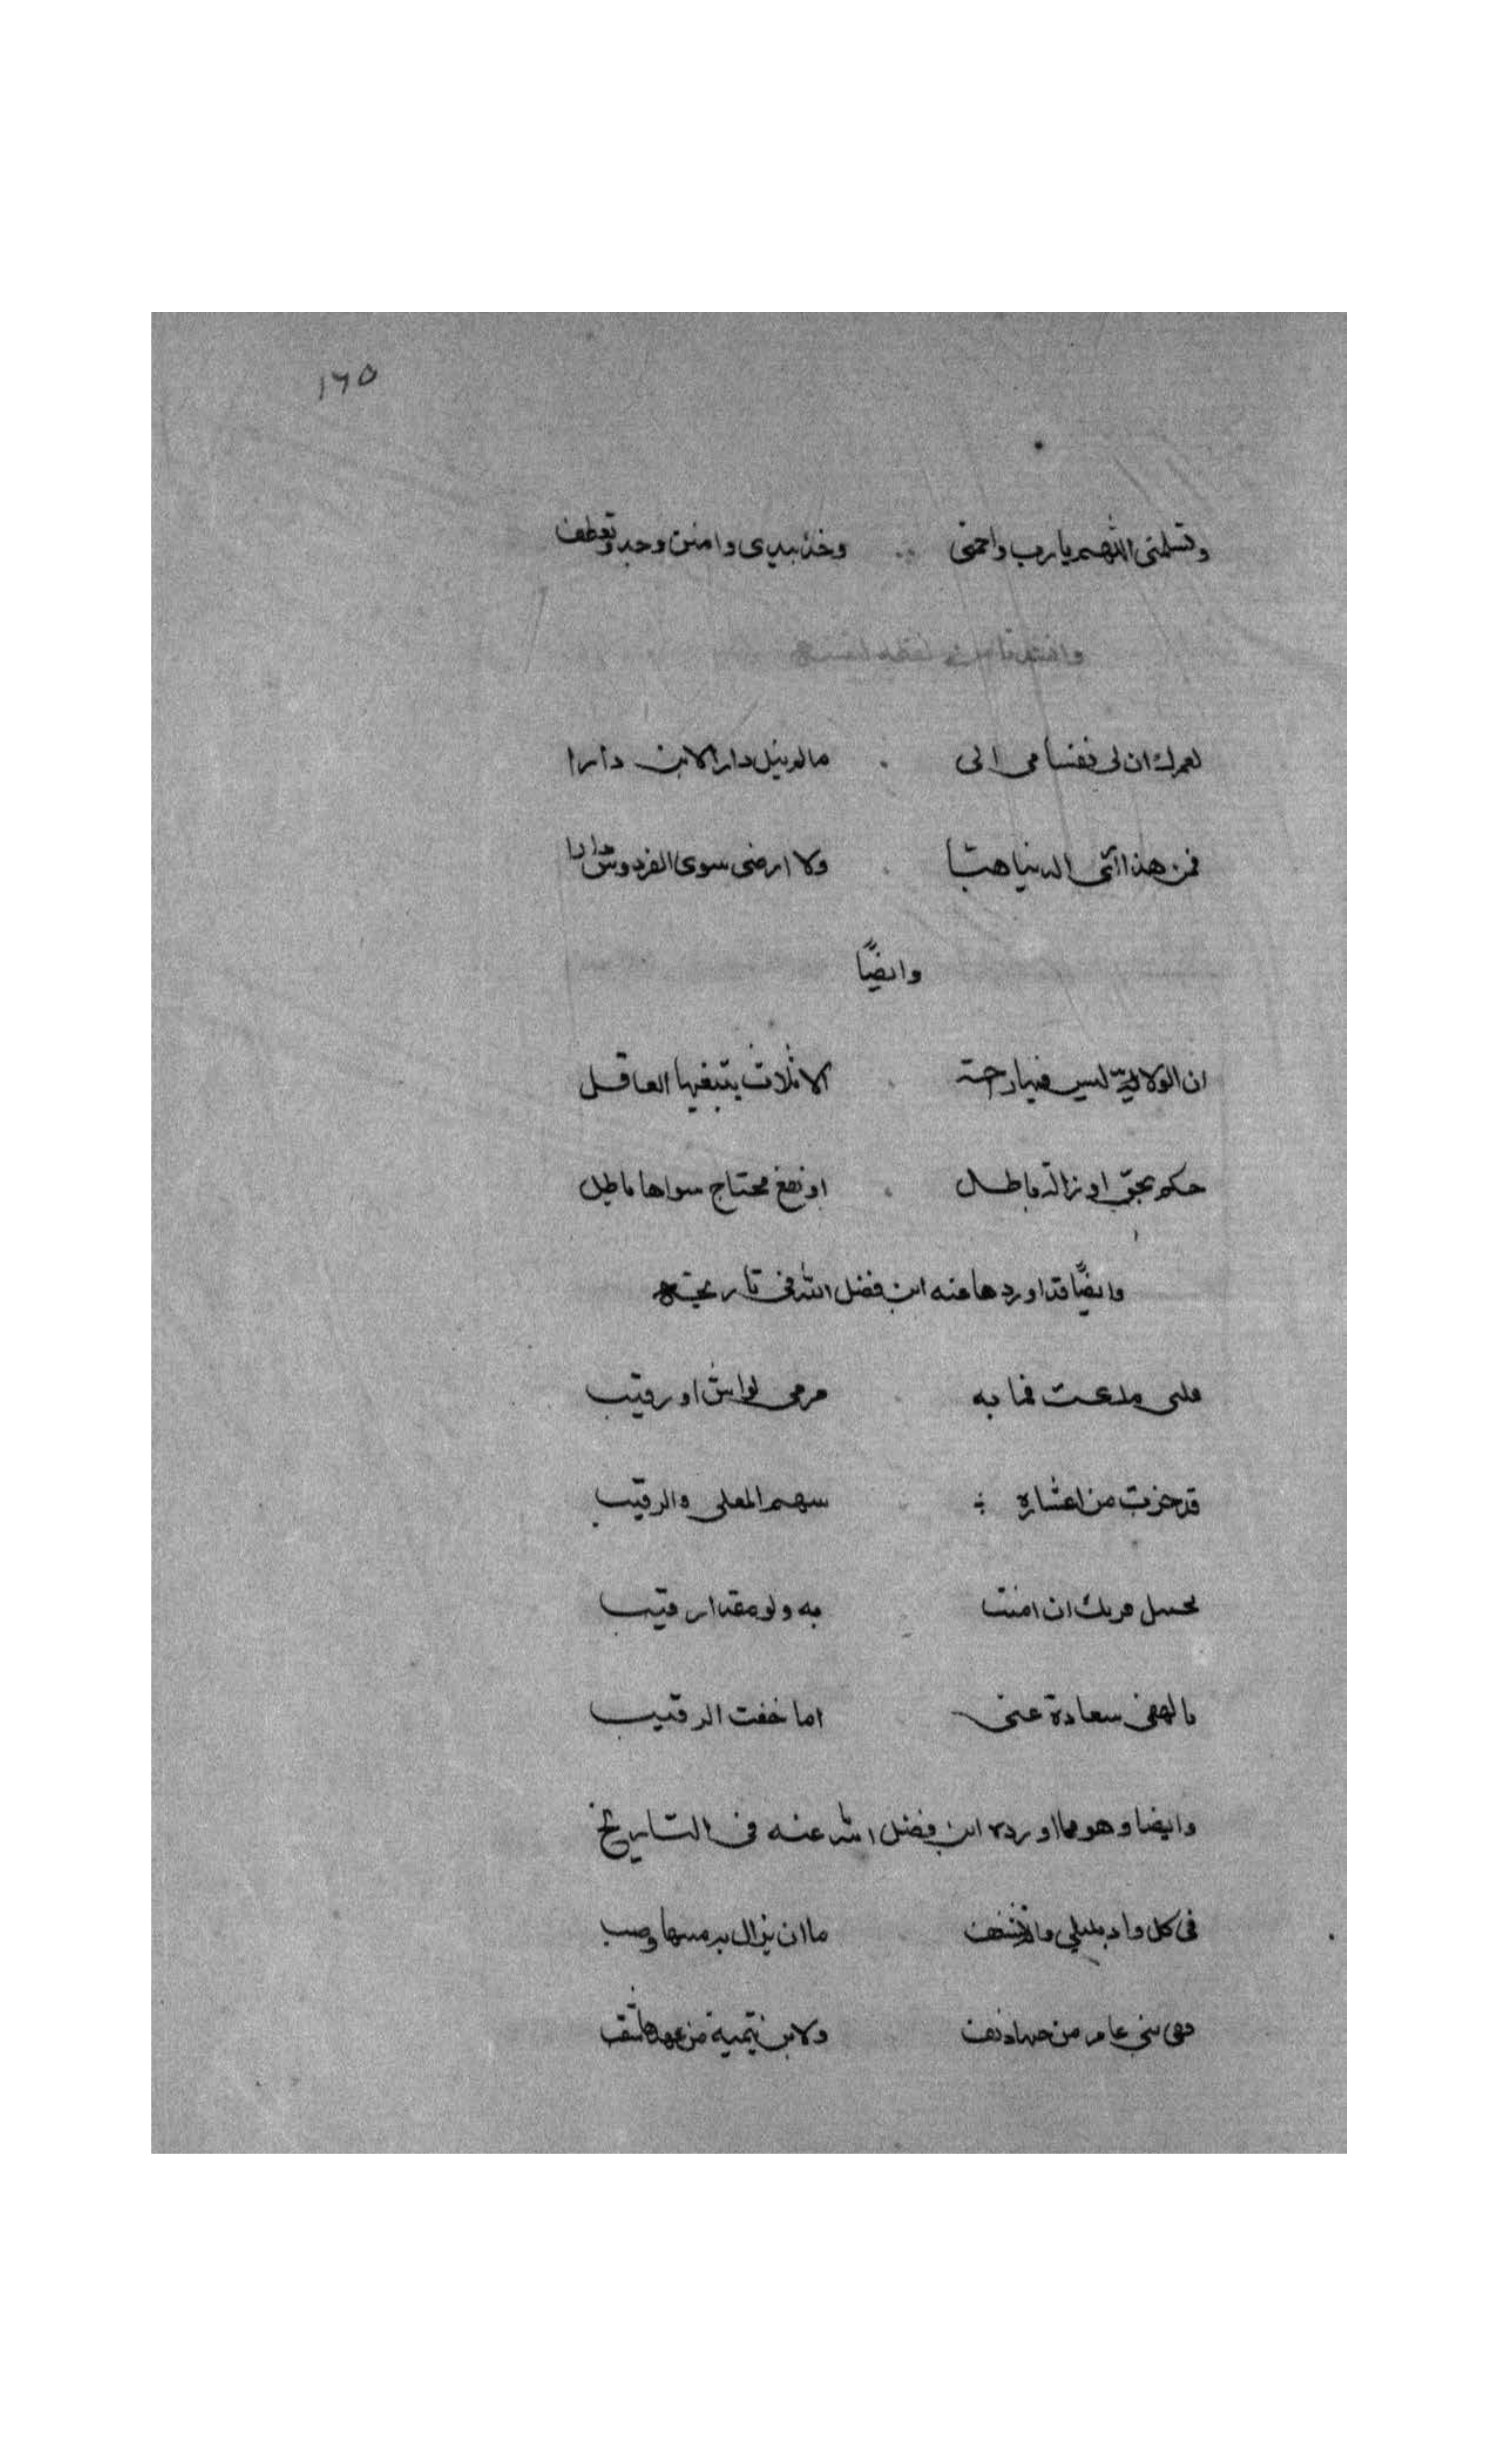 ١٦٥
اللهم يارب وخذ بيدي وامنن وجد وتعطف
وانشدنا لنفسه
لعمرك ان لي نفسا الى مالم ينل دارا لابن دارا
فمن هذا ارى الدنيا هبا ولا ارضى سوى الفردوس دارا
وايضًا
ان الولاية ليس فيها راحة الا ثلاث يبتغيها العاقل
حكم بحق او ازالة باطل او نفع محتاج سواها باطل
وايضًا قد اوردها عنه ابن فضل الله في تاريخه
قلبي ملكت فما به مرمى لواش او رقيب
قد حزت من اعشاره سهم المعلى والرقيب
يحييه قربك ان مننت به ولو مقدار قيب
يا بعادة عني اما خفت الرقيب
وايضا وهو مما اورده ابن فضل الله عنه في التاريخ
في كل واد بليلى ما ان يزال به من مسها وصب
بني عامر من حبها دنف ولابن تيمية من عهدها